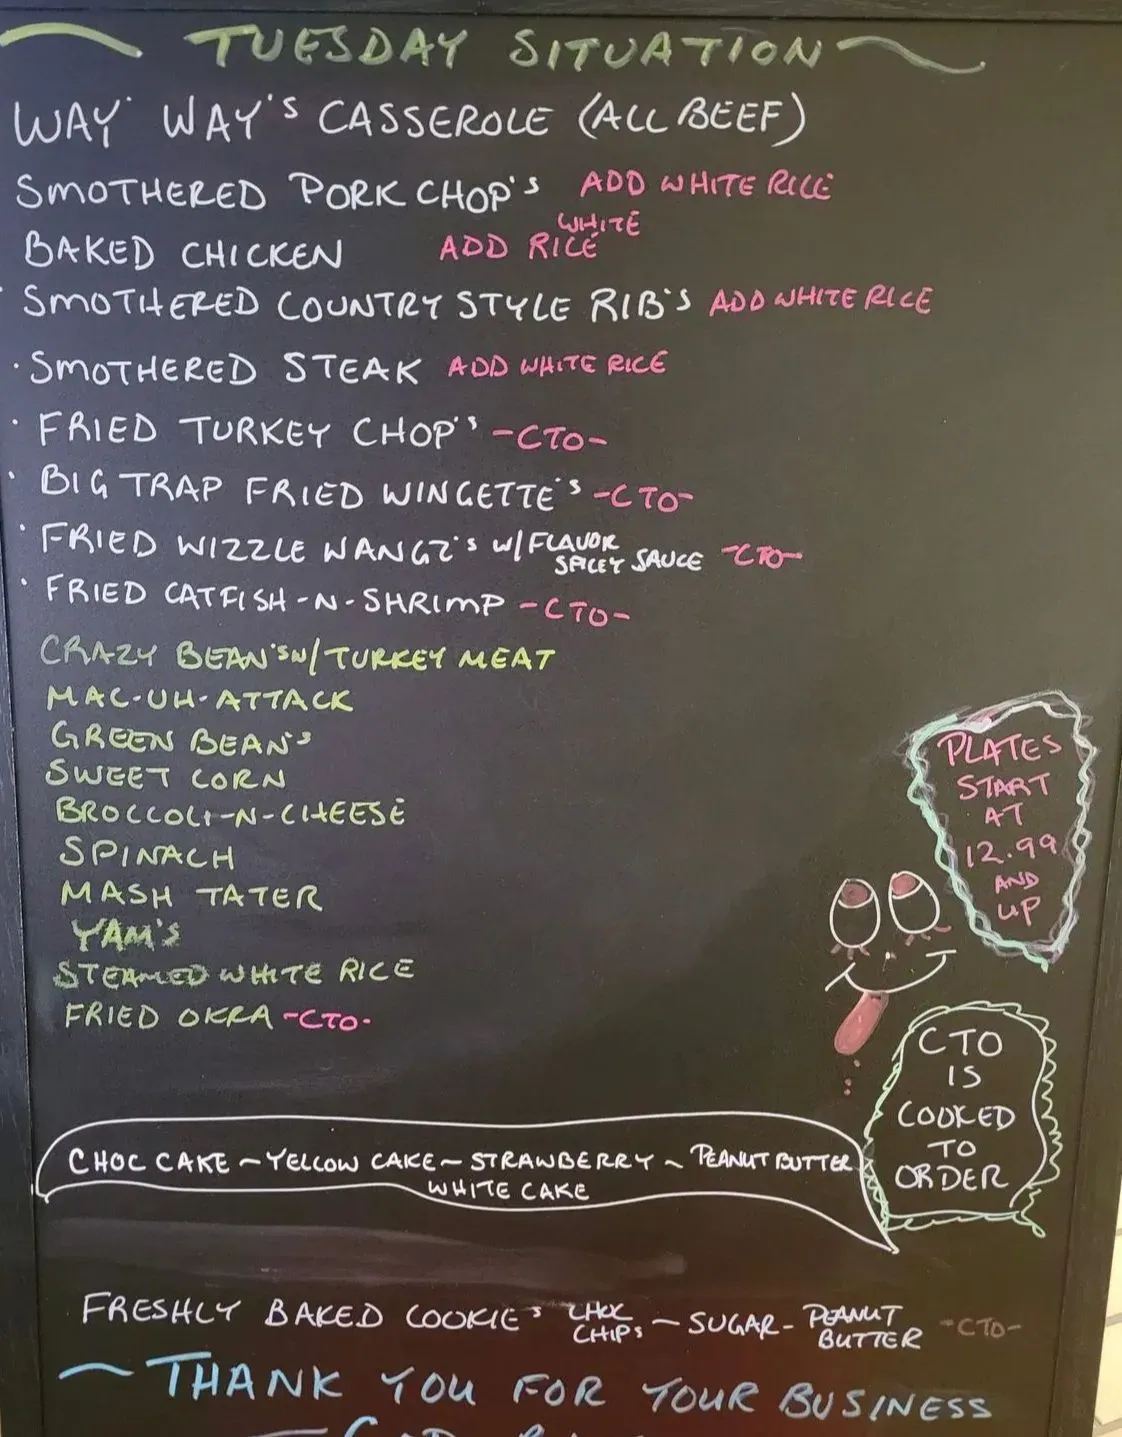 ~ TUESDAY SITUATION ~
WAY' WAY'S CASSEROLE (ALL BEEF)
SMOTHERED PORK CHOP'S ADD WHITE RICE
BAKED CHICKEN ADD WHITE RICE
SMOTHERED COUNTRY STYLE RIB'S ADD WHITE RICE
· SMOTHERED STEAK ADD WHITE RICE
· FRIED TURKEY CHOP'S -CTO-
· BIG TRAP FRIED WINGETTE'S -CTO-
· FRIED WIZZLE WANGZ'S W/FLAVOR SPICEY SAUCE -CTO-
· FRIED CATFISH-N-SHRIMP -CTO-
CRAZY BEAN'S W/TURKEY MEAT
MAC-UH-ATTACK
GREEN BEAN'S
SWEET CORN
BROCCOLI-N-CHEESE
SPINACH
MASH TATER
YAM'S
STEAMED WHITE RICE
FRIED OKRA -CTO-
PLATES
START
AT
12.99
AND
UP
CTO
IS
COOKED
TO
ORDER
CHOC CAKE ~ YELLOW CAKE ~ STRAWBERRY ~ PEANUT BUTTER
WHITE CAKE
FRESHLY BAKED COOKIE'S CHOC CHIPS ~ SUGAR - PEANUT BUTTER -CTO-
~ THANK YOU FOR YOUR BUSINESS